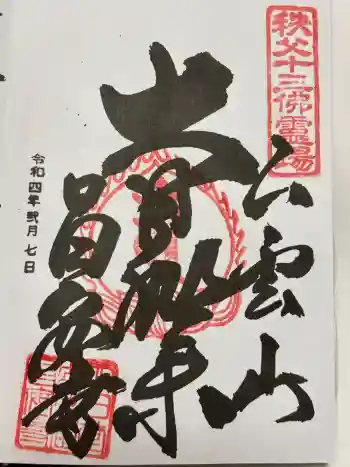 秩父十三佛霊場
八雲山
大日如来
昌安寺
令和四年弐月七日